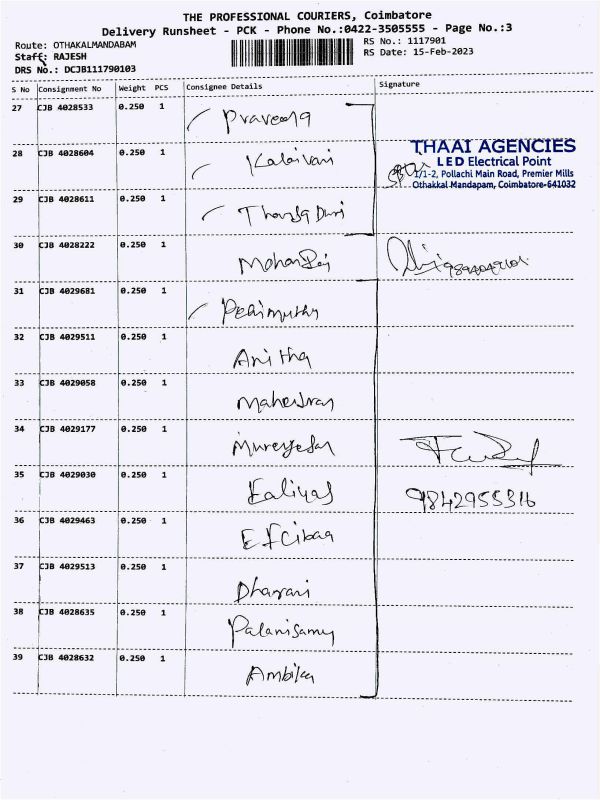 THE PROFESSIONAL COURIERS, Coimbatore
Delivery Runsheet - PCK - Phone No.:0422-3505555 - Page No.:3
Route: OTHAKALMANDABAM
RS No.: 1117901
Staff: RAJESH
RS Date: 15-Feb-2023
DRS No.: DCJB111790103
S No Consignment No Weight PCS Consignee Details Signature
27 CJB 4028533 0.250 1 Praveena
28 CJB 4028604 0.250 1 Kalaivani
THAAI AGENCIES
LED Electrical Point
1/1-2, Pollachi Main Road, Premier Mills
Othakkal Mandapam, Coimbatore-641032
29 CJB 4028611 0.250 1
30 CJB 4028222 0.250 1 MohanRaj
31 CJB 4029681 0.250 1
32 CJB 4029511 0.250 1 Anitha
33 CJB 4029058 0.250 1
34 CJB 4029177 0.250 1
35 CJB 4029030 0.250 1 9842955316
36 CJB 4029463 0.250 1
37 CJB 4029513 0.250 1 Dharani
38 CJB 4028635 0.250 1 Palanisamy
39 CJB 4028632 0.250 1 Ambika